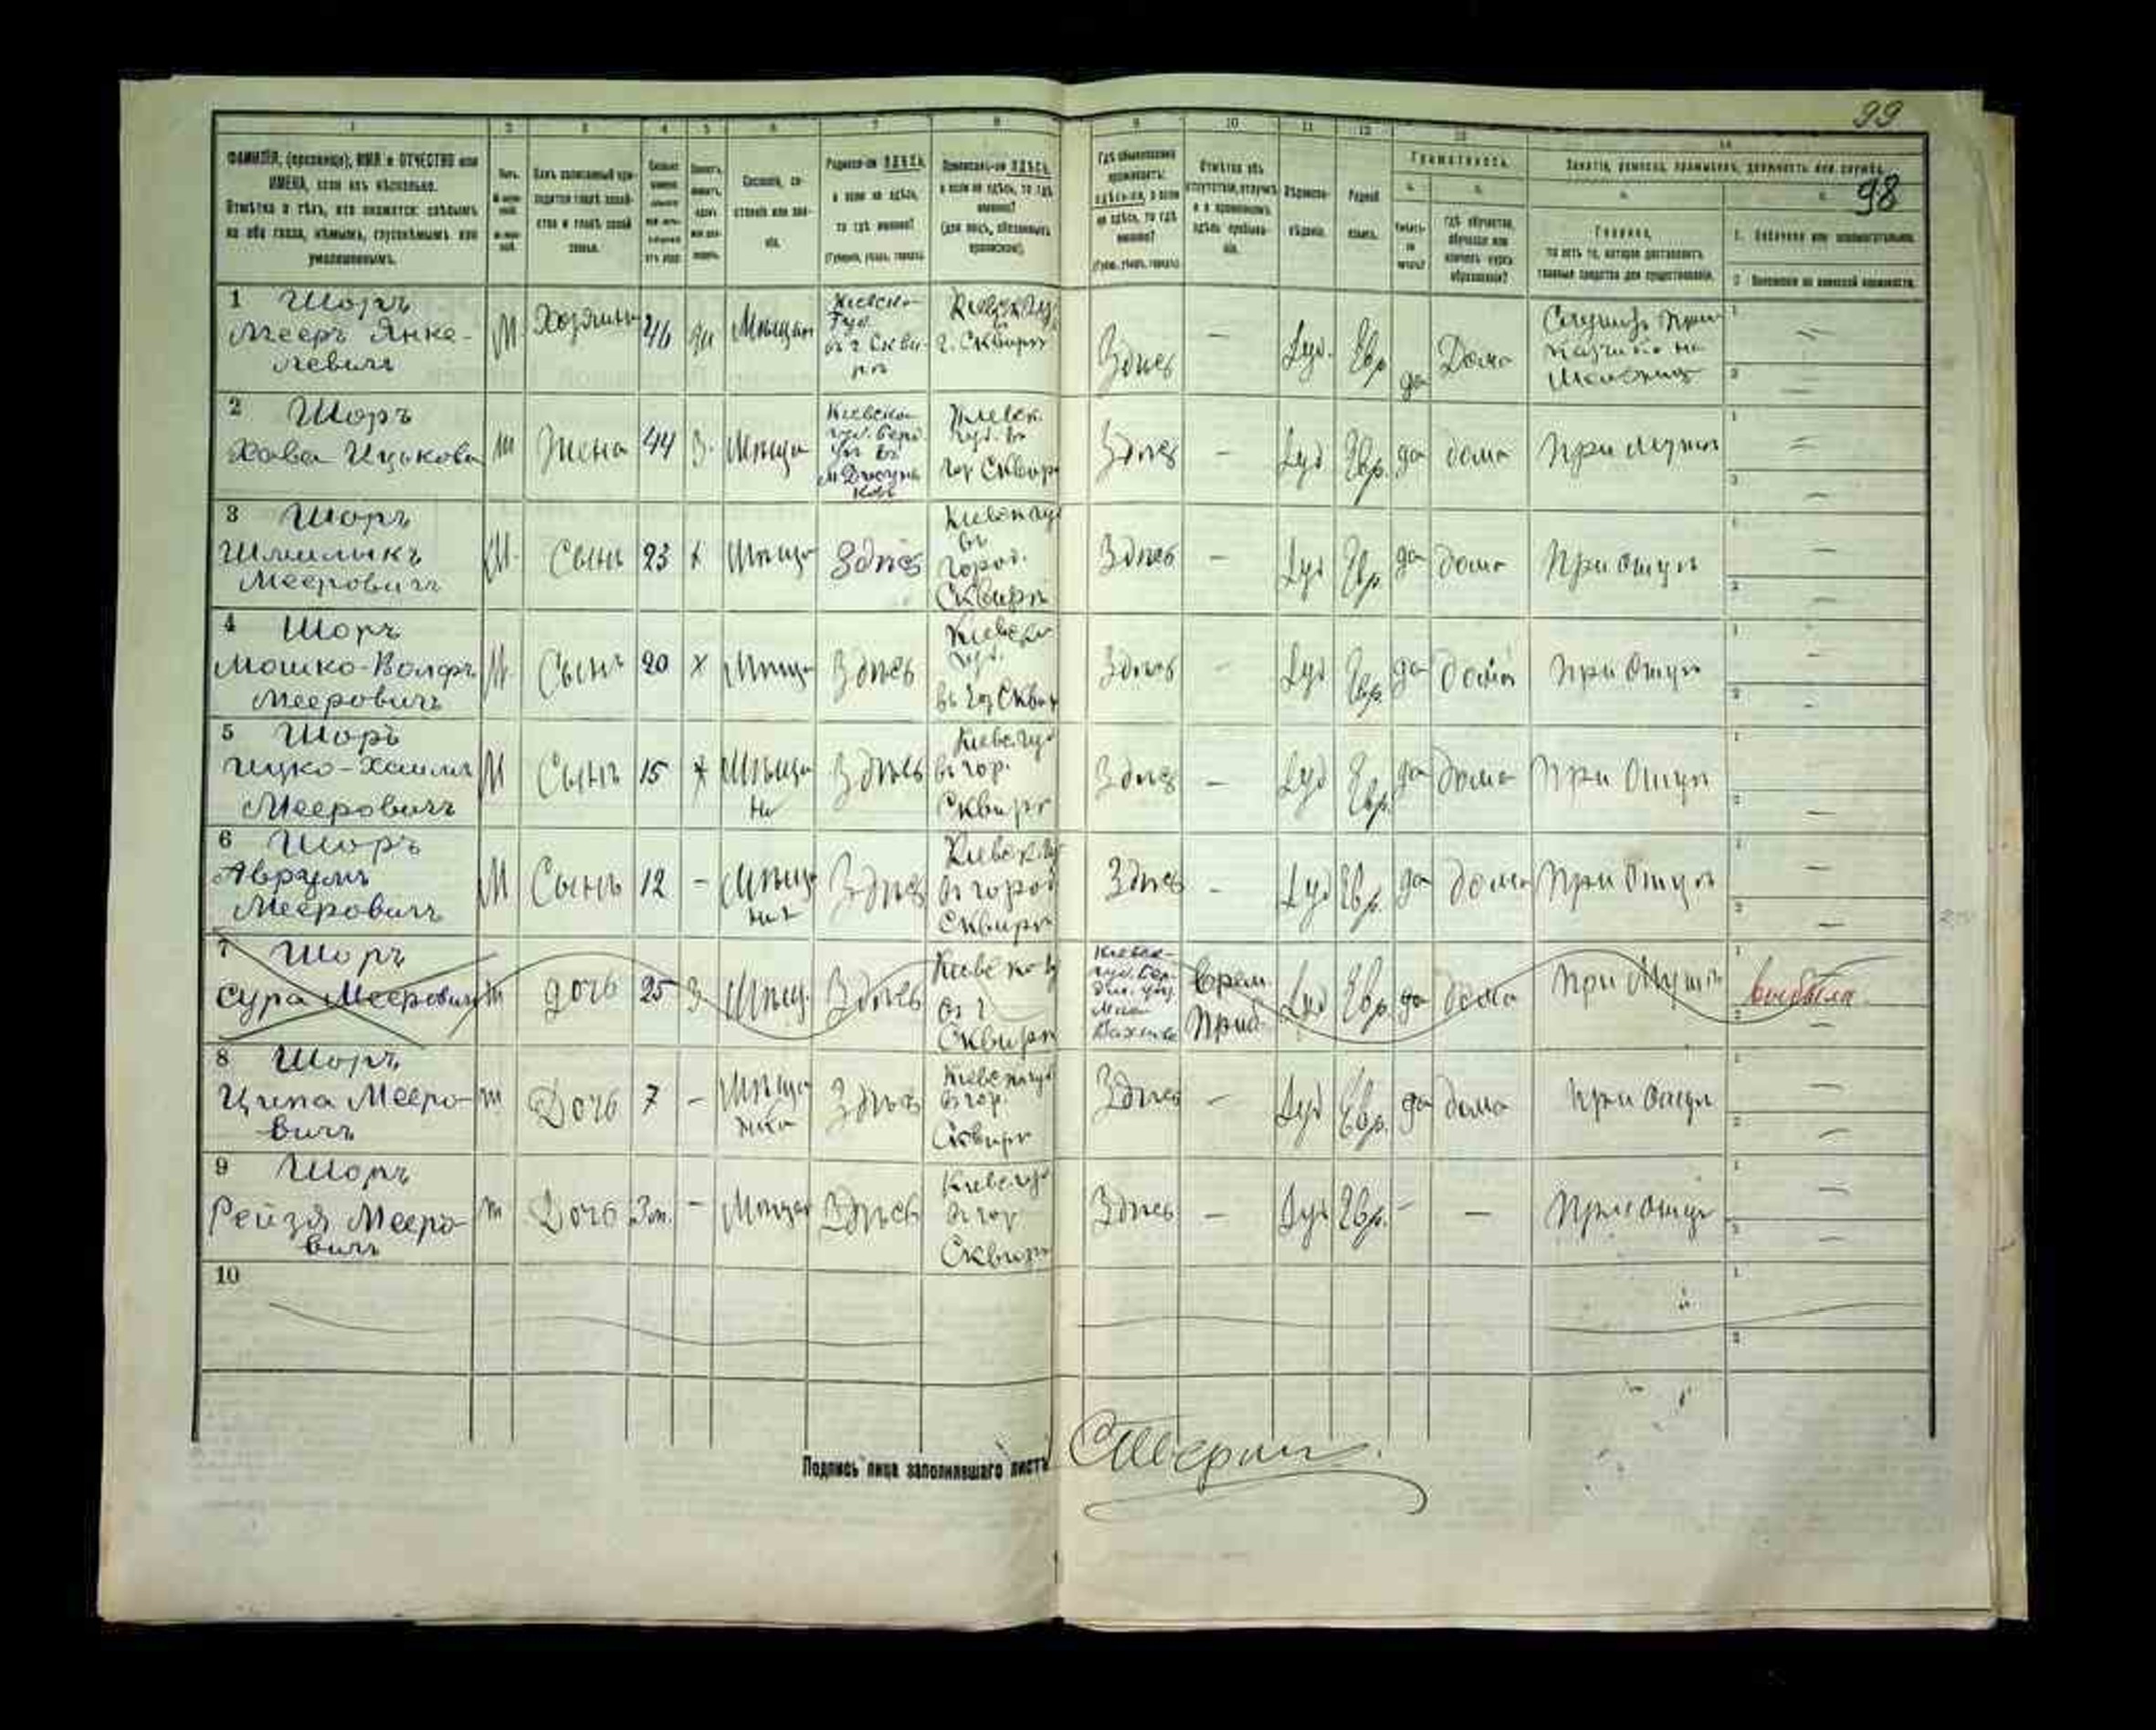 99
98
1 2 3 4 5 6 7 8 9 10 11 12 13 14
ФАМИЛІЯ, (прозвище), ИМЯ и ОТЧЕСТВО или
ИМЕНА, если ихъ нѣсколько.
Отмѣтка о тѣхъ, кто окажется: слѣпымъ
на оба глаза, нѣмымъ, глухонѣмымъ или
умалишеннымъ.
Полъ.
Какъ записанный при-
ходится главѣ хозяй-
ства и главѣ своей
семьи.
Сословіе, со-
стояніе или зва-
ніе.
Родился-ли ЗДѢСЬ,
а если не здѣсь,
то гдѣ именно?
(Губернія, уѣздъ, городъ).
Приписанъ-ли ЗДѢСЬ,
а если не здѣсь, то гдѣ
именно?
(для лицъ, обязанныхъ
припискою).
Гдѣ обыкновенно
проживаетъ:
здѣсь-ли, а если
не здѣсь, то гдѣ
именно?
(Губ., уѣздъ, городъ)
Отмѣтка объ
отсутствіи, отлучкѣ
и о временномъ
здѣсь пребыва-
ніи.
Вѣроиспо-
вѣданіе.
Родной
языкъ.
Грамотность.
а.
Умѣетъ-
ли
читать?
б.
Гдѣ обучается,
обучался или
кончилъ курсъ
образованія?
Занятіе, ремесло, промыселъ, должность или служба.
а.
Главное,
то есть то, которое доставляетъ
главныя средства для существованія.
б.
1. Побочное или вспомогательное.
2. Положеніе по воинской повинности.
1 Шоръ
Мееръ Янке-
левичъ
М Хозяинъ 46 Мѣщан
Кіевско
Губ.
въ г. Скви-
рѣ
г. Сквирѣ
Здѣсь — Іуд. Евр да Дома
2 Шоръ
Хава Ицькова
ж Жена 44 з. Мѣща
Кіевско
губ. Берд.
уѣз въ
Кіевск.
губ. въ
гор Сквирѣ
Здѣсь — Іуд Евр. да дома При мужѣ
3 Шоръ
Шмилыкъ
Мееровичъ
М. Сынъ 23 х Мѣща Здѣсь
въ
город.
Сквирѣ
Здѣсь — Іуд Евр да дома При отцѣ
4 Шоръ
Мошко-Волфъ
Мееровичъ
М. Сынъ 20 х Мѣща Здѣсь
Кіевско
губ.
въ гор Сквир
Здѣсь — Іуд Евр. да дома при отцѣ
5 Шоръ
Ицко-Хаимъ
Мееровичъ
М Сынъ 15 х Мѣща
ни
Здѣсь
Кіев. губ
въ гор.
Сквирѣ
Здѣсь — Іуд Евр. да дома При отцѣ
6 Шоръ
Аврумъ
Мееровичъ
М Сынъ 12 — Мѣщ
Здѣсь
въ город
Сквирѣ
Здѣсь — Іуд Евр. да дома При отцѣ
7 Шоръ
Сура Мееровичъ
ж дочь 25 з Мѣщ. Здѣсь
въ г
Сквирѣ
Кіевск
губ. Бер-
дич. уѣз.
Врем.
Приб.
Іуд Евр. да дома При Мужѣ выбыла
8 Шоръ
Ципа Мееро-
вичъ
ж Дочь 7 — Мѣща
нка
Здѣсь
въ гор.
Сквирѣ
Здѣсь — Іуд Евр. да дома При отцѣ
9 Шоръ
Рейзя Мееро
вичъ
ж Дочь 3 м. — Мѣща Здѣсь
Кіев губ
въ гор
Сквирѣ
Здѣсь — Іуд Евр. — — При отцѣ
10
Подпись лица заполнявшаго листъ